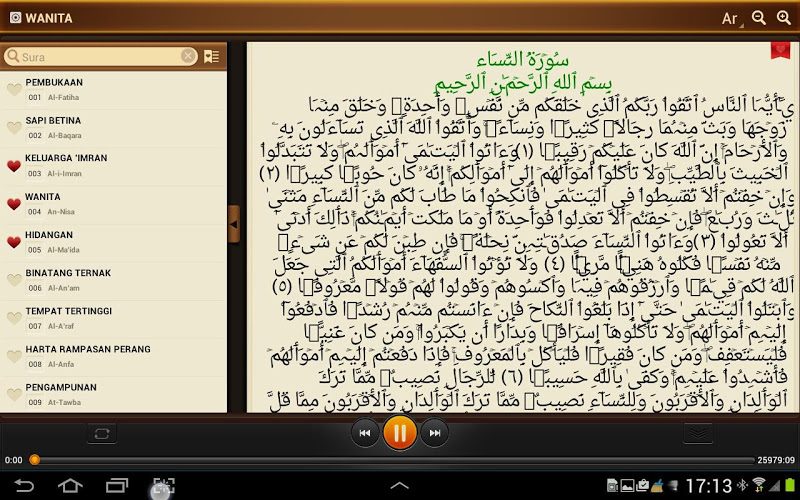 WANITA
Ar
Sura
PEMBUKAAN
001 Al-Fatiha
SAPI BETINA
002 Al-Baqara
KELUARGA 'IMRAN
003 Al-i-Imran
WANITA
004 An-Nisa
HIDANGAN
005 Al-Ma'ida
BINATANG TERNAK
006 Al-An'am
TEMPAT TERTINGGI
007 Al-A'raf
HARTA RAMPASAN PERANG
008 Al-Anfa
PENGAMPUNAN
009 At-Tawba
سُورَةُ النِّسَاء
بِسۡمِ ٱللهِ ٱلرَّحۡمَـٰنِ ٱلرَّحِيمِ
يَـٰٓأَيُّہَا ٱلنَّاسُ ٱتَّقُواْ رَبَّكُمُ ٱلَّذِى خَلَقَكُم مِّن نَّفۡسٍ۬ وَٲحِدَةٍ۬ وَخَلَقَ مِنۡہَا
زَوۡجَهَا وَبَثَّ مِنۡہُمَا رِجَالاً۬ كَثِيرً۬ا وَنِسَآءً۬‌ۚ وَٱتَّقُواْ ٱللَّهَ ٱلَّذِى تَسَآءَلُونَ بِهِۦ
وَٱلۡأَرۡحَامَ‌ۚ إِنَّ ٱللَّهَ كَانَ عَلَيۡكُمۡ رَقِيبً۬ا (١) وَءَاتُواْ ٱلۡيَتَـٰمَىٰٓ أَمۡوَٲلَهُمۡ‌ۖ وَلَا تَتَبَدَّلُواْ
ٱلۡخَبِيثَ بِٱلطَّيِّبِ‌ۖ وَلَا تَأۡكُلُوٓاْ أَمۡوَٲلَهُمۡ إِلَىٰٓ أَمۡوَٲلِكُمۡ‌ۚ إِنَّهُ ۥ كَانَ حُوبً۬ا كَبِيرً۬ا (٢)
وَإِنۡ خِفۡتُمۡ أَلَّا تُقۡسِطُواْ فِى ٱلۡيَتَـٰمَىٰ فَٱنكِحُواْ مَا طَابَ لَكُم مِّنَ ٱلنِّسَآءِ مَثۡنَىٰ
وَثُلَـٰثَ وَرُبَـٰعَ‌ۖ فَإِنۡ خِفۡتُمۡ أَلَّا تَعۡدِلُواْ فَوَٲحِدَةً أَوۡ مَا مَلَكَتۡ أَيۡمَـٰنُكُمۡ‌ۚ ذَٲلِكَ أَدۡنَىٰٓ
أَلَّا تَعُولُواْ (٣) وَءَاتُواْ ٱلنِّسَآءَ صَدُقَـٰتِہِنَّ نِحۡلَةً۬‌ۚ فَإِن طِبۡنَ لَكُمۡ عَن شَىۡءٍ۬
مِّنۡهُ نَفۡسً۬ا فَكُلُوهُ هَنِيٓـًٔ۬ا مَّرِيٓـًٔ۬ا (٤) وَلَا تُؤۡتُواْ ٱلسُّفَهَآءَ أَمۡوَٲلَكُمُ ٱلَّتِى جَعَلَ
ٱللَّهُ لَكُمۡ قِيَـٰمً۬ا وَٱرۡزُقُوهُمۡ فِيہَا وَٱكۡسُوهُمۡ وَقُولُواْ لَهُمۡ قَوۡلاً۬ مَّعۡرُوفً۬ا (٥)
وَٱبۡتَلُواْ ٱلۡيَتَـٰمَىٰ حَتَّىٰٓ إِذَا بَلَغُواْ ٱلنِّكَاحَ فَإِنۡ ءَانَسۡتُم مِّنۡہُمۡ رُشۡدً۬ا فَٱدۡفَعُوٓاْ
إِلَيۡہِمۡ أَمۡوَٲلَهُمۡ‌ۖ وَلَا تَأۡكُلُوهَآ إِسۡرَافً۬ا وَبِدَارًا أَن يَكۡبَرُواْ‌ۚ وَمَن كَانَ غَنِيًّ۬ا
فَلۡيَسۡتَعۡفِفۡ‌ۖ وَمَن كَانَ فَقِيرً۬ا فَلۡيَأۡكُلۡ بِٱلۡمَعۡرُوفِ‌ۚ فَإِذَا دَفَعۡتُمۡ إِلَيۡہِمۡ أَمۡوَٲلَهُمۡ
فَأَشۡہِدُواْ عَلَيۡہِمۡ‌ۚ وَكَفَىٰ بِٱللَّهِ حَسِيبً۬ا (٦) لِّلرِّجَالِ نَصِيبٌ۬ مِّمَّا تَرَكَ
ٱلۡوَٲلِدَانِ وَٱلۡأَقۡرَبُونَ وَلِلنِّسَآءِ نَصِيبٌ۬ مِّمَّا تَرَكَ ٱلۡوَٲلِدَانِ وَٱلۡأَقۡرَبُونَ مِمَّا قَلَّ
0:00
25979:09
17:13